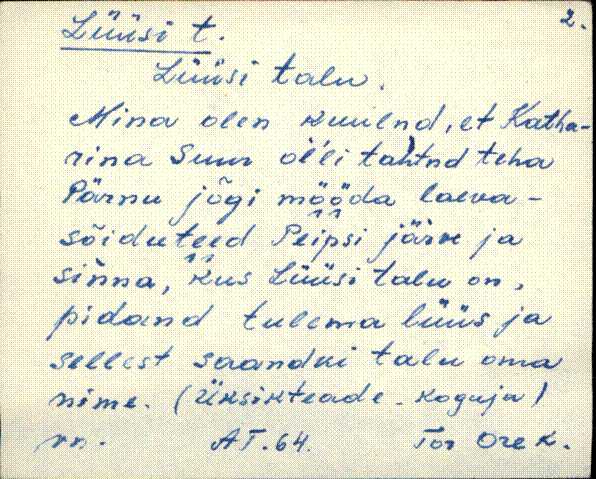 2.
Lüüsi t.
Lüüsi talu.
Mina olen kuulnd, et Katha-
rina Suur olli tahtnd teha
Pärnu jõgi mööda laeva-
sõiduteed Peipsi järve ja
sinna, kus Lüüsi talu on,
pidand tulema lüüs ja
sellest saandki talu oma
nime. (Üksikteade - koguja)
AT. 64. Tor Ore k.